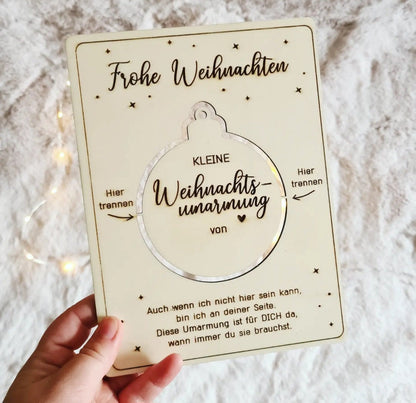 Frohe Weihnachten
KLEINE
Weihnachts-
umarmung
von
Hier
trennen
Hier
trennen
Auch wenn ich nicht hier sein kann,
bin ich an deiner Seite.
Diese Umarmung ist für DICH da,
wann immer du sie brauchst.